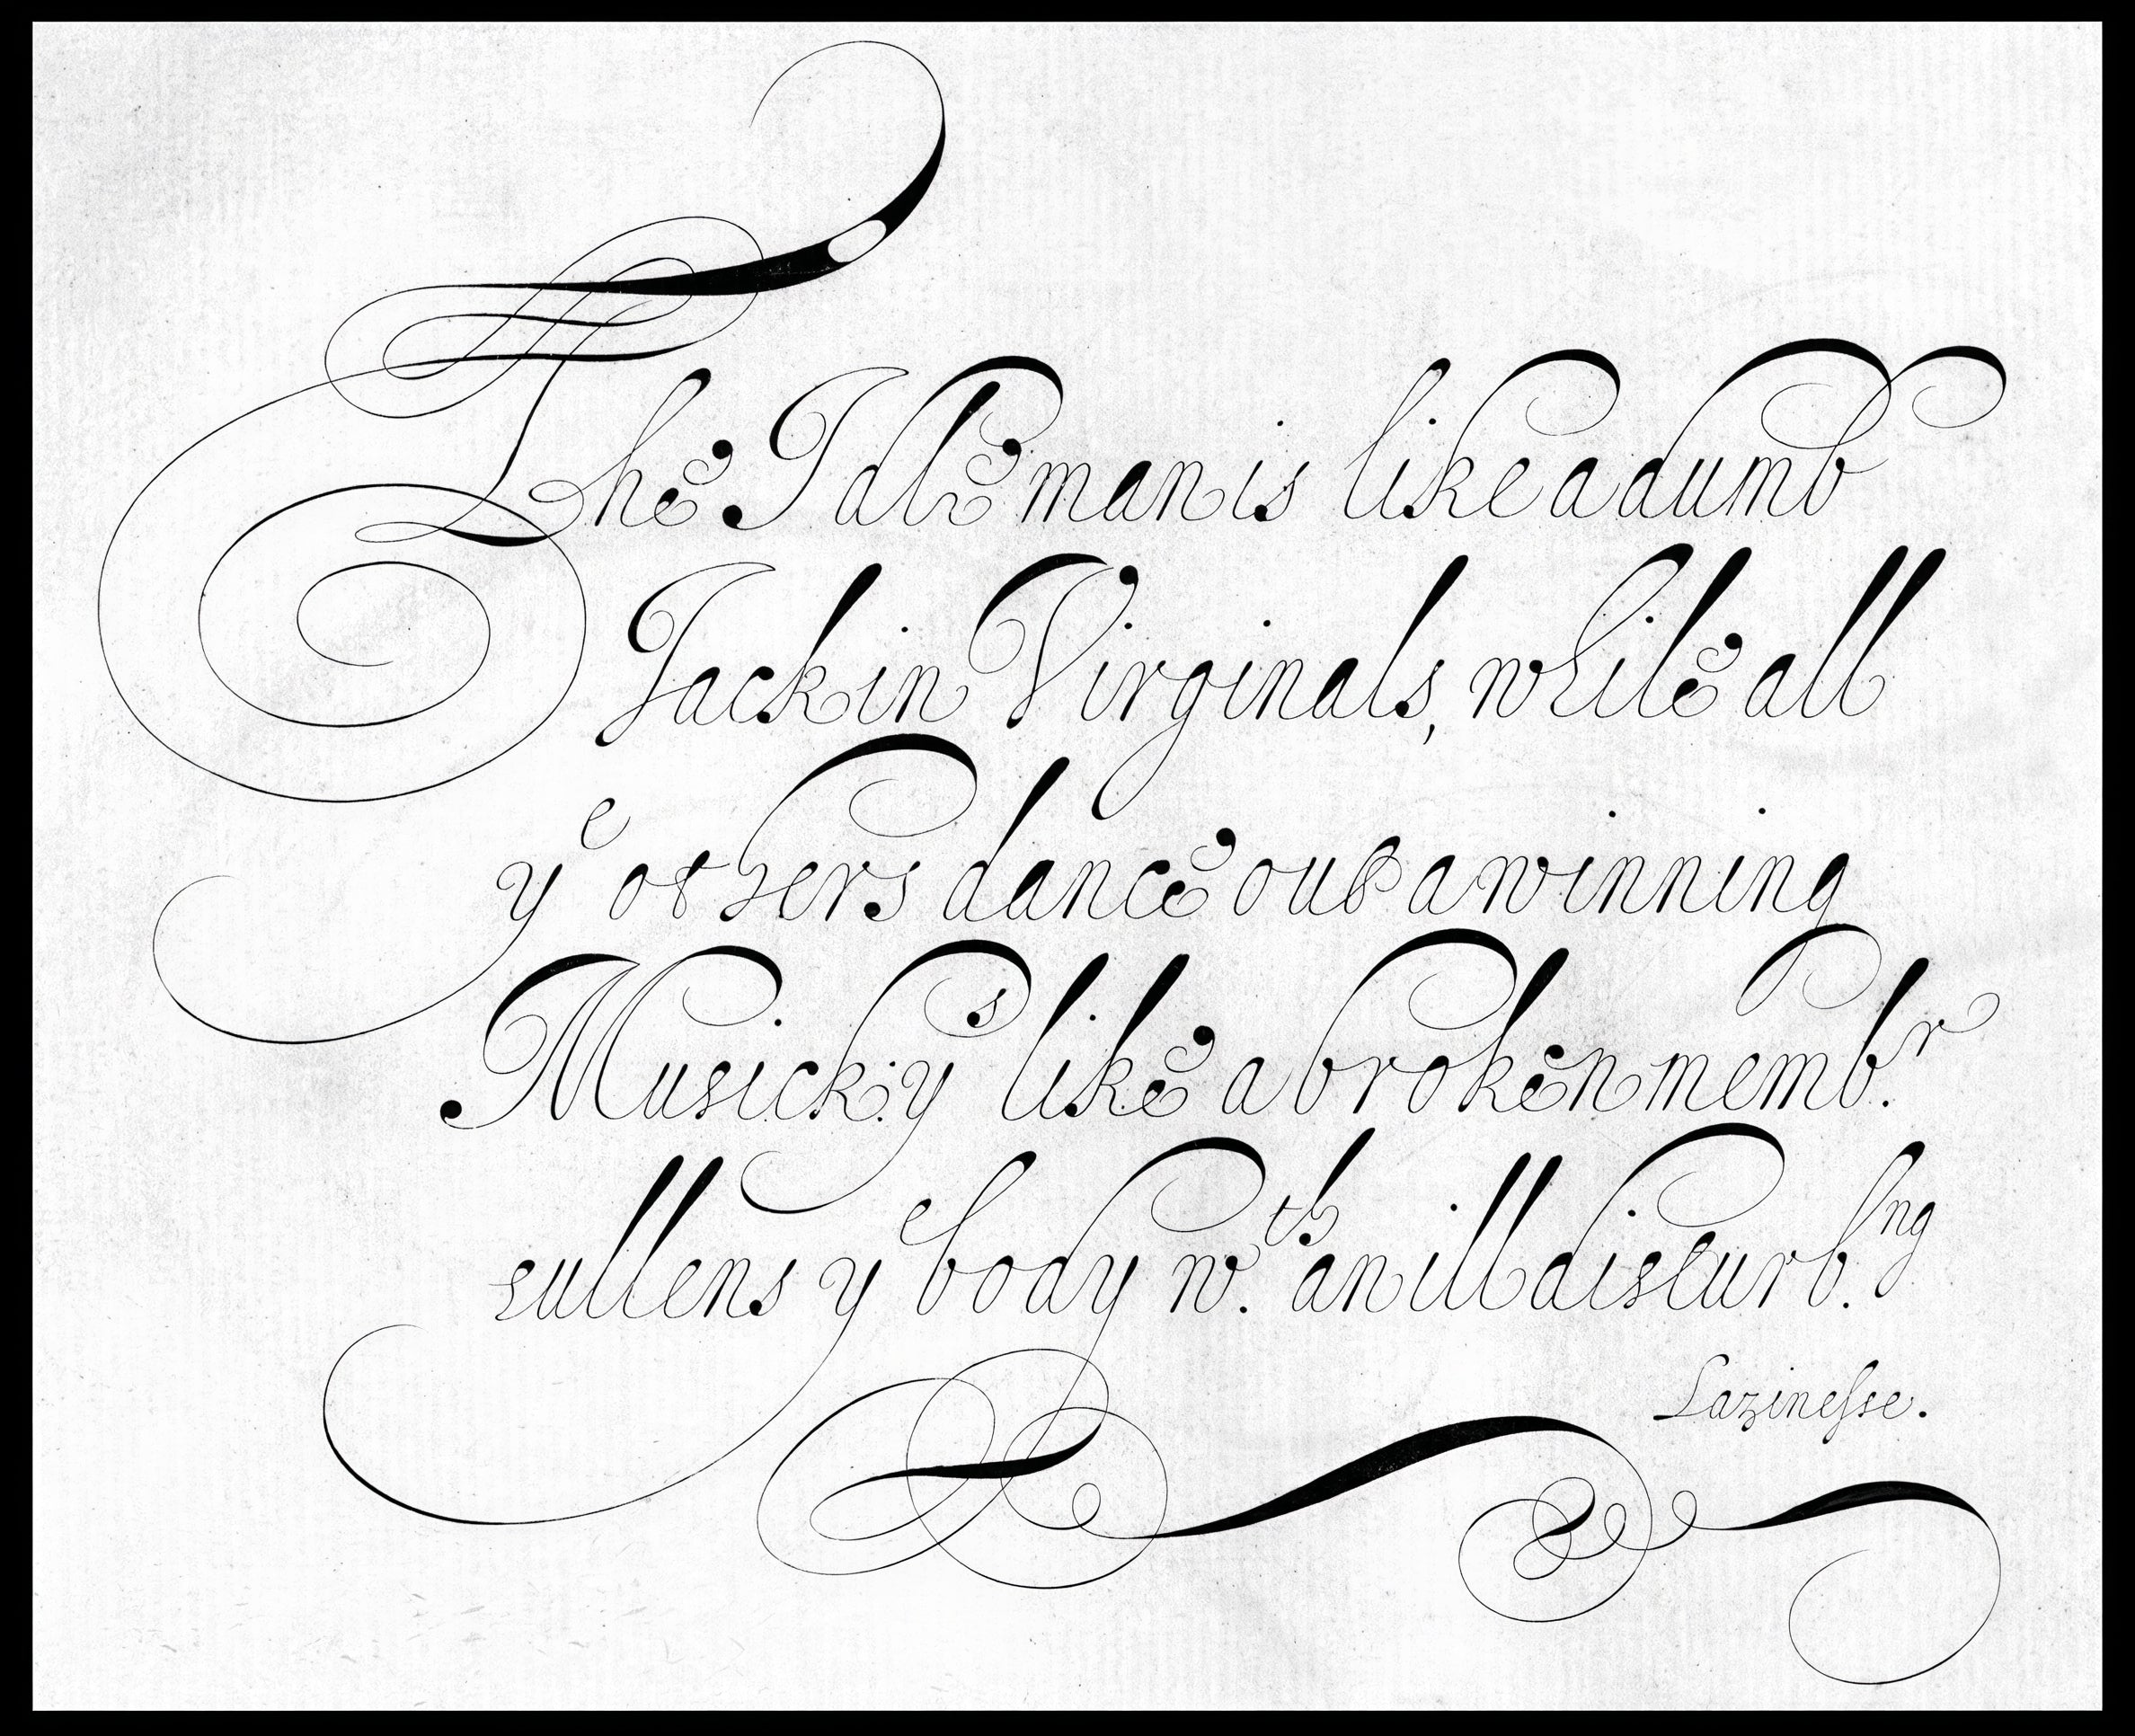 The Idle man is like a dumb
Jack in Virginals, while all
yᵉ others dance out a winning
Musick: yˢ like a broken membʳ.
sullens yᵉ body wᵗʰ. an ill disturbⁿᵍ.
Lazinesse.